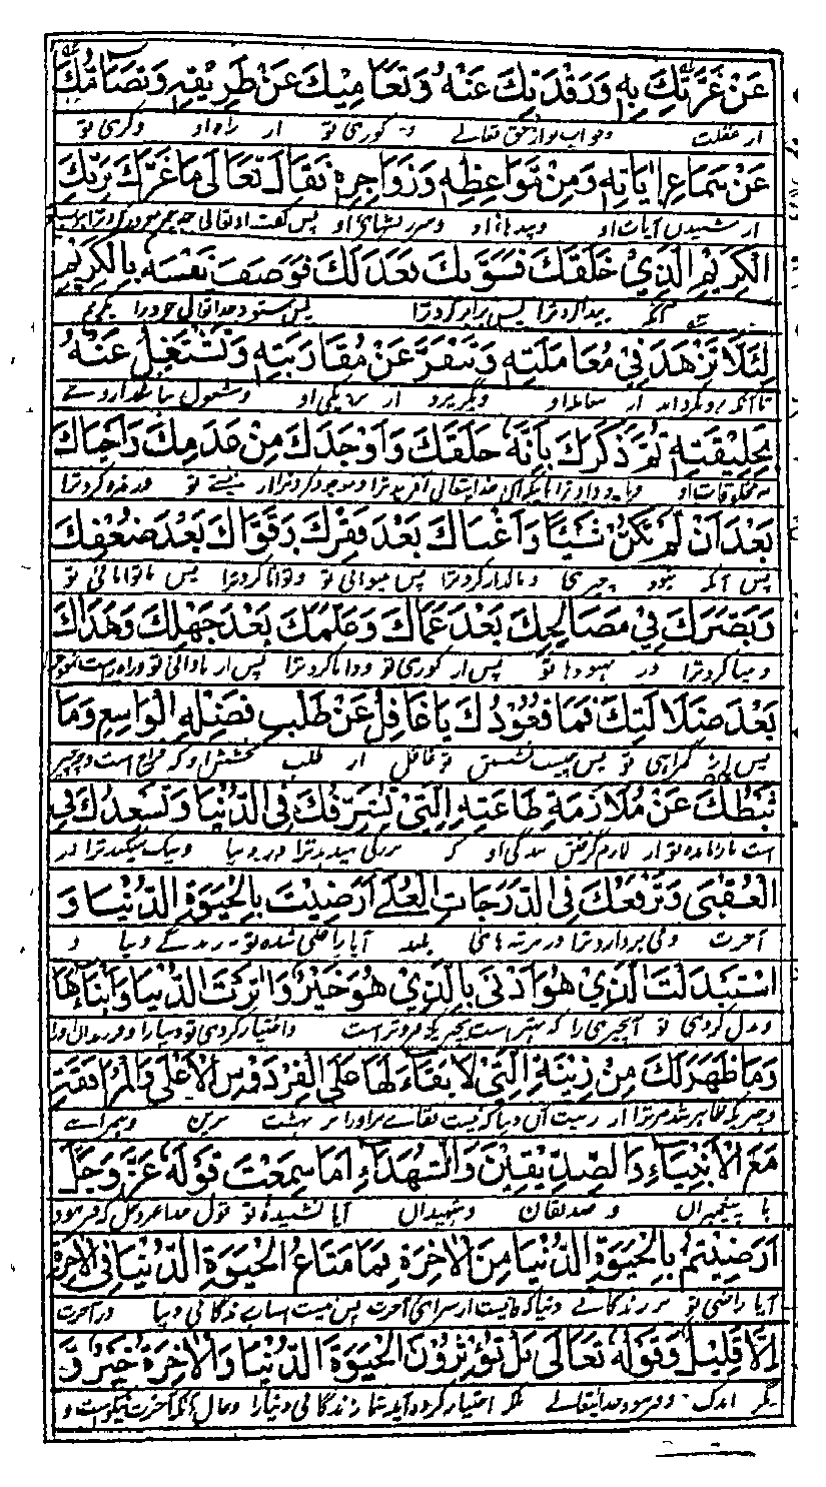 عَنْ غَرَّتِكَ بِهِ وَرَقْدَتِكَ عَنْهُ وَتَعَامِيكَ عَنْ طَرِيقِهِ وَتَصَامُمِكَ
از غفلت وخواب تو از حق تعالے و کوری تو از راه او وکری تو
عَنْ سَمَاعِ اٰيَاتِهِ وَمِنْ مَوَاعِظِهِ وَزَوَاجِرِهِ فَقَالَ تَعَالَى مَاغَرَّكَ بِرَبِّكَ
از شنیدن آیات او وپندها او وسرزنشهای او پس گفت او تعالی چه چیز
الْكَرِيْمِ الَّذِيْ خَلَقَكَ فَسَوّٰىكَ فَعَدَلَكَ فَوَصَفَ نَفْسَهُ بِالْكَرِيْمِ
آنکه پیدا کرد ترا پس برابر کرد ترا پس ستود خدا تعالی خود را بکریم
لِئَلَّا تَزْهَدَ فِيْ مُعَامَلَتِهِ وَتَنْفَرَّ عَنْ مُقَارَبَتِهِ وَتَشْتَغِلَ عَنْهُ
تا آنکه رو نگردانی از معامله او و نگریزی از نزدیکی او ومشغول نباشی از وے
بِخَلِيْقَتِهِ ثُمَّ ذَكَّرَكَ بِأَنَّهُ خَلَقَكَ وَاَوْجَدَكَ مِنْ عَدَمِكَ وَاَحْيَاكَ
بمخلوقات او ویاد داد ترا باینکه خدایتعالی آفرید ترا وموجود کرد ترا از نیستی تو وزنده کرد ترا
بَعْدَ اَنْ لَمْ تَكُنْ شَيْئًا وَاَغْنَاكَ بَعْدَ فَقْرِكَ وَقَوَّاكَ بَعْدَ ضَعْفِكَ
پس آنکه نبود چیزی ومالدار کرد ترا پس بینوائی تو وتوانا کرد ترا پس ناتوانائی تو
وَبَصَّرَكَ فِيْ مَصَالِحِكَ بَعْدَ عَمَاكَ وَعَلَّمَكَ بَعْدَ جَهْلِكَ وَهَدَاكَ
وبینا کرد ترا در بهبودها تو پس از کوری تو ودانا کرد ترا پس از نادانی تو وراه راست نمود
بَعْدَ ضَلَالَتِكَ فَمَا قُعُوْدُكَ يَاغَافِلُ عَنْ طَلَبِ فَضْلِهِ الْوَاسِعِ وَمَا
پس از گمراهی تو پس چیست نشستن تو غافل از طلب بخشش او که فراخ است وچه چیز
ثَبَّطَكَ عَنْ مُلَازَمَةِ طَاعَتِهِ الَّتِيْ تُشَرِّفُكَ فِي الدُّنْيَا وَتُسْعِدُكَ فِي
است باز مانده تو از لازم گرفتن بندگی او که بزرگی میدهد ترا در دنیا ونیک میکند ترا در
الْعُقْبٰى وَتَرْفَعُكَ فِي الدَّرَجَاتِ الْعُلٰى اَرَضِيْتَ بِالْحَيٰوةِ الدُّنْيَا وَ
آخرت و می بردارد ترا در مرتبه هائے بلند آیا راضی شده تو بزندگے دنیا و
اسْتَبْدَلْتَ الَّذِيْ هُوَ اَدْنٰى بِالَّذِيْ هُوَ خَيْرٌ وَاٰثَرْتَ الدُّنْيَا وَاَبْنَاءَهَا
وبدل کردی تو آن چیزی را که بهتر است بچیزیکه فروتر است واختیار کردی تو دنیا را وفرزندان او را
وَمَا ظَهَرَ لَكَ مِنْ زِيْنَةِ الَّتِيْ لَا بَقَاءَ لَهَا عَلَى الْفِرْدَوْسِ الْاَعْلٰى وَالْمُرَافَقَةِ
وچیزیکه ظاهر شد مر ترا از زینت آن دنیا که نیست بقائے مر او را بر بهشت برین وهمراهے
مَعَ الْاَنْبِيَاءِ وَالصِّدِّيْقِيْنَ وَالشُّهَدَاءِ اَمَا سَمِعْتَ قَوْلَهُ عَزَّ وَجَلَّ
با پیغمبران و صدیقان وشهیدان آیا نشنیدۀ تو قول خدا عزوجل که فرمود
اَرَضِيْتُمْ بِالْحَيٰوةِ الدُّنْيَا مِنَ الْاٰخِرَةِ فَمَا مَتَاعُ الْحَيٰوةِ الدُّنْيَا فِي الْاٰخِرَةِ
آیا راضی تو بر زندگانے دنیا از سرای آخرت پس نیست اسباب زندگانی دنیا در آخرت
اِلَّا قَلِيْلٌ وَقَوْلُهُ تَعَالَى بَلْ تُؤْثِرُوْنَ الْحَيٰوةَ الدُّنْيَا وَالْاٰخِرَةُ خَيْرٌ وَّ
مگر اندک وفرموده خدایتعالے بلکه اختیار کرده آید شما زندگانی دنیا را وحال آنکه آخرت نیکو است و